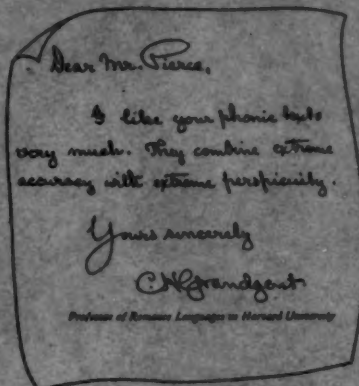 Dear Mr. Pierce,
I like your phonic texts
very much. They combine extreme
accuracy with extreme perspicuity.
Yours sincerely
CH Grandgent
Professor of Romance Languages in Harvard University